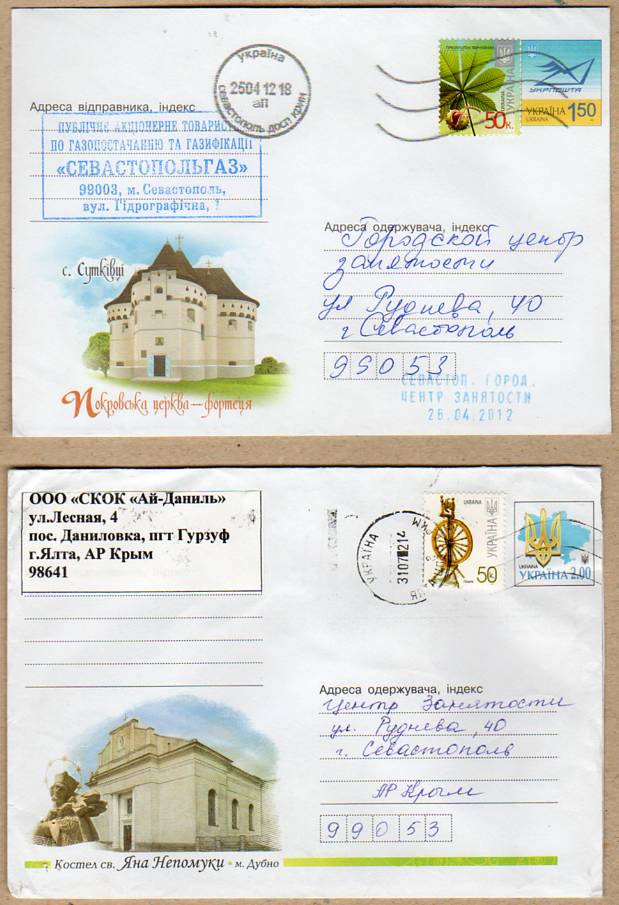 україна
25 04 12 18
ап
СЕВАСТОПОЛЬ ДОСП КРИМ
50к.
УКРАЇНА
УКРПОШТА
УКРАЇНА 1.50
UKRAINA
Адреса відправника, індекс
ПУБЛІЧНЕ АКЦІОНЕРНЕ ТОВАРИСТ
ПО ГАЗОПОСТАЧАННЮ ТА ГАЗИФІКАЦІЇ
«СЕВАСТОПОЛЬГАЗ»
99003, м. Севастополь,
вул. Гідрографічна, 1
с. Сутківці
Покровська церква—фортеця
Адреса одержувача, індекс
Городской центр
занятости
ул Руднева, 40
г Севастополь
99053
СЕВАСТОП. ГОРОД.
ЦЕНТР ЗАНЯТОСТИ
26.04.2012
ООО «СКОК «Ай-Даниль»
ул.Лесная, 4
пос. Даниловка, пгт Гурзуф
г.Ялта, АР Крым
98641
УКРАЇНА
50к
УКРАЇНА
UKRAINA
УКРАЇНА 2.00
Адреса одержувача, індекс
Центр Занятости
ул. Руднева, 40
г. Севастополь
АР Крым
99053
Костел св. Яна Непомуки • м. Дубно